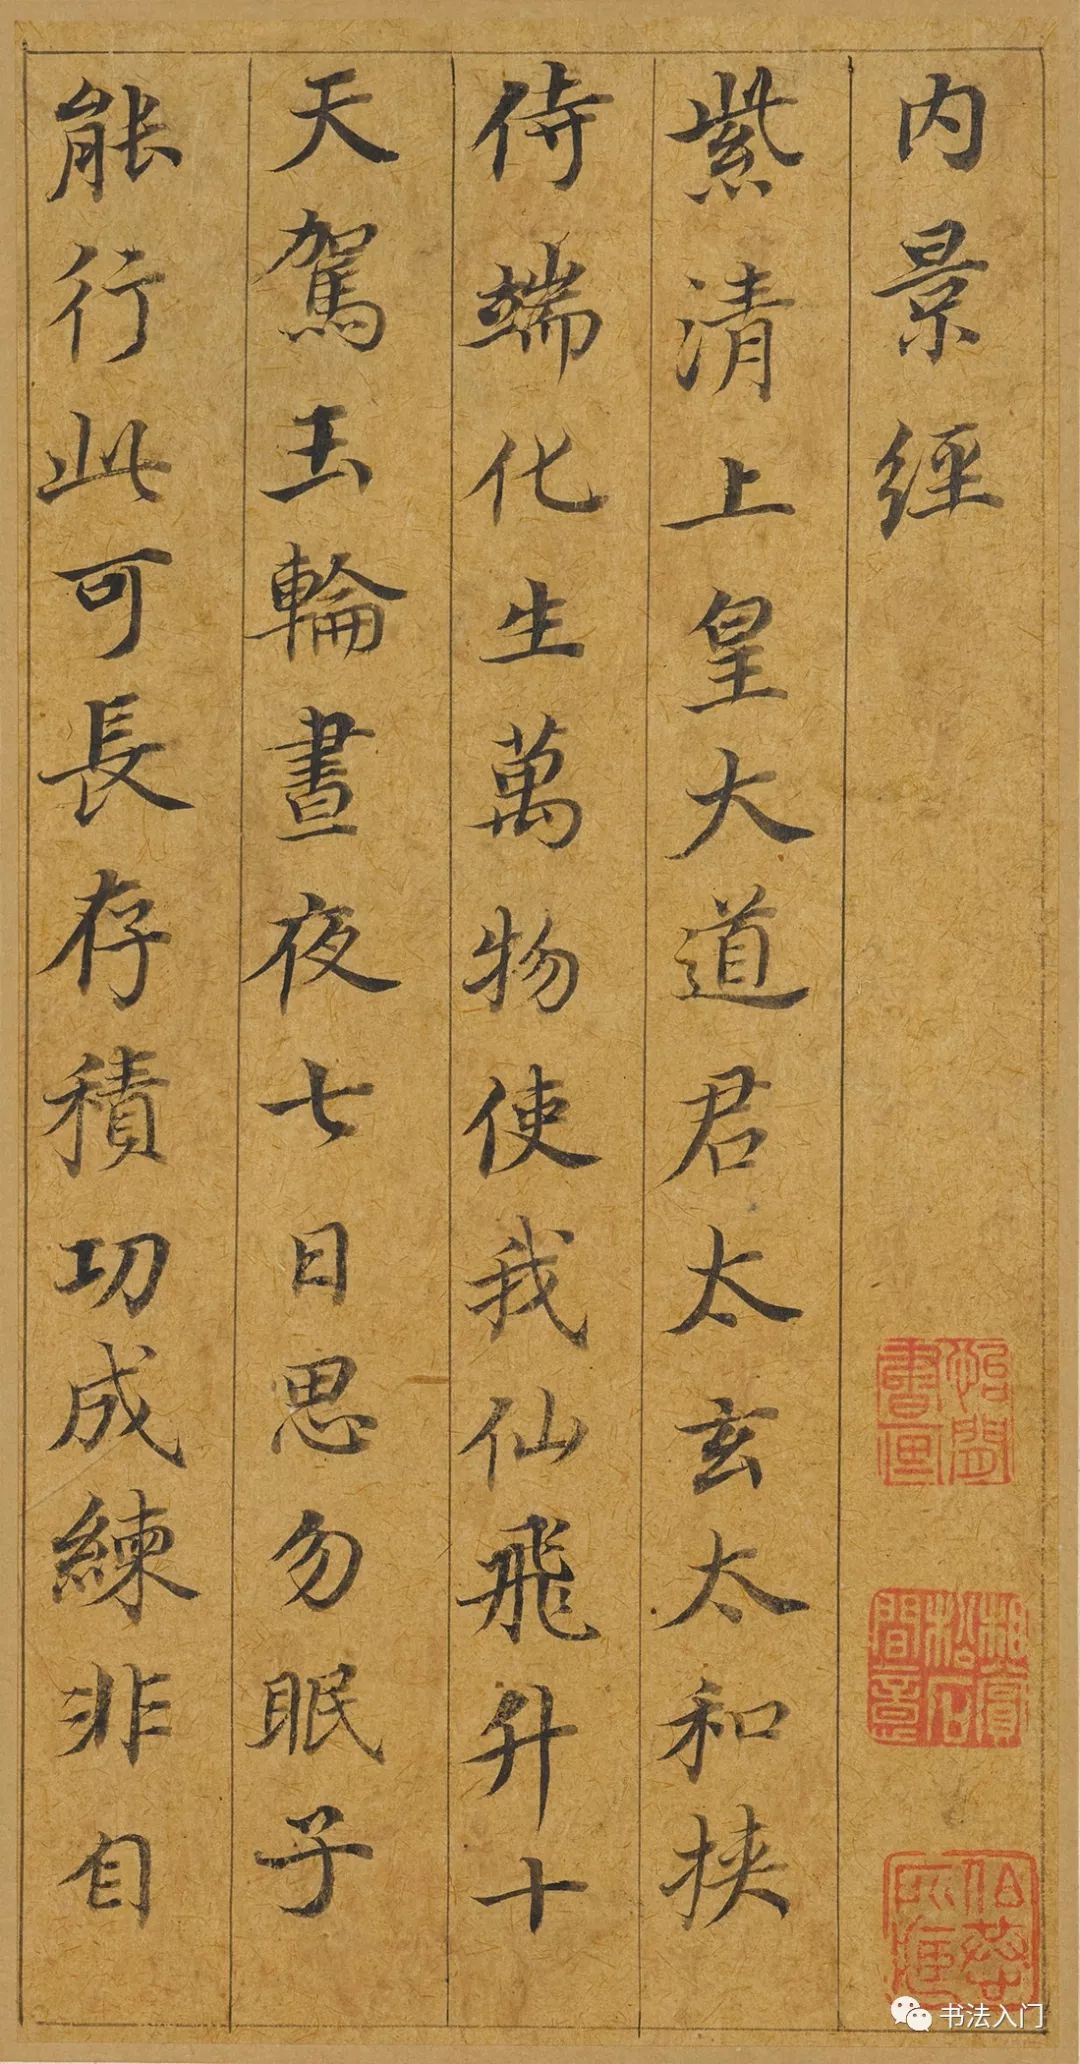 内景經
紫清上皇大道君太玄太和挾
侍端化生萬物使我仙飛升十
天駕玉輪晝夜七日思勿眠子
能行此可長存積功成練非自
書畫
書法入门